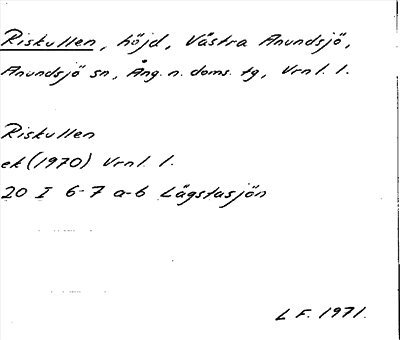 Riskullen, höjd, Västra Anundsjö,
Anundsjö sn, Ång. n. doms. tg, Vrnl. l.
Riskullen
ek (1970) Vrnl. l.
20 I 6-7 a-b Lågstasjön
L F. 1971.